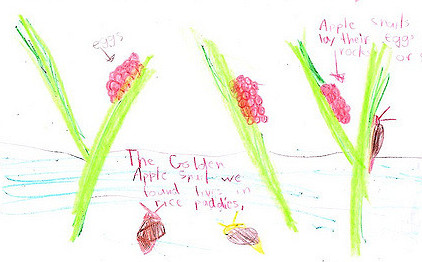 eggs
Apple snails
lay their eggs
rocks or
The Golden
Apple snail we
found lives in
rice paddies,